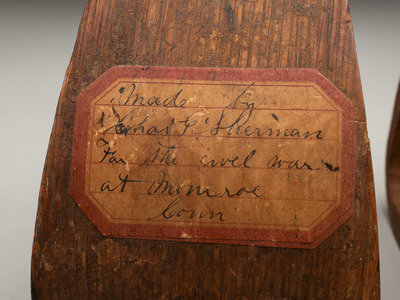 Made by
Chas F. Sherman
For the civel war
at Monroe
Conn